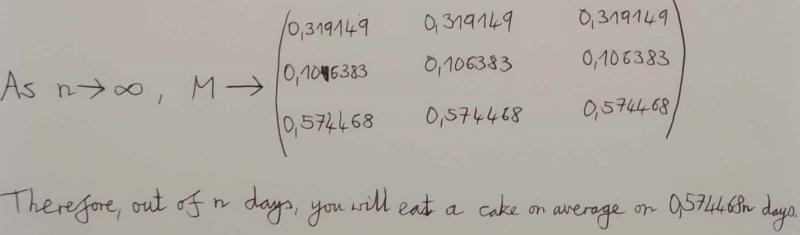 0,319149 0,319149 0,319149
As n → ∞, M → 0,106383 0,106383 0,106383
0,574468 0,574468 0,574468
Therefore, out of n days, you will eat a cake on average on 0,574468n days.